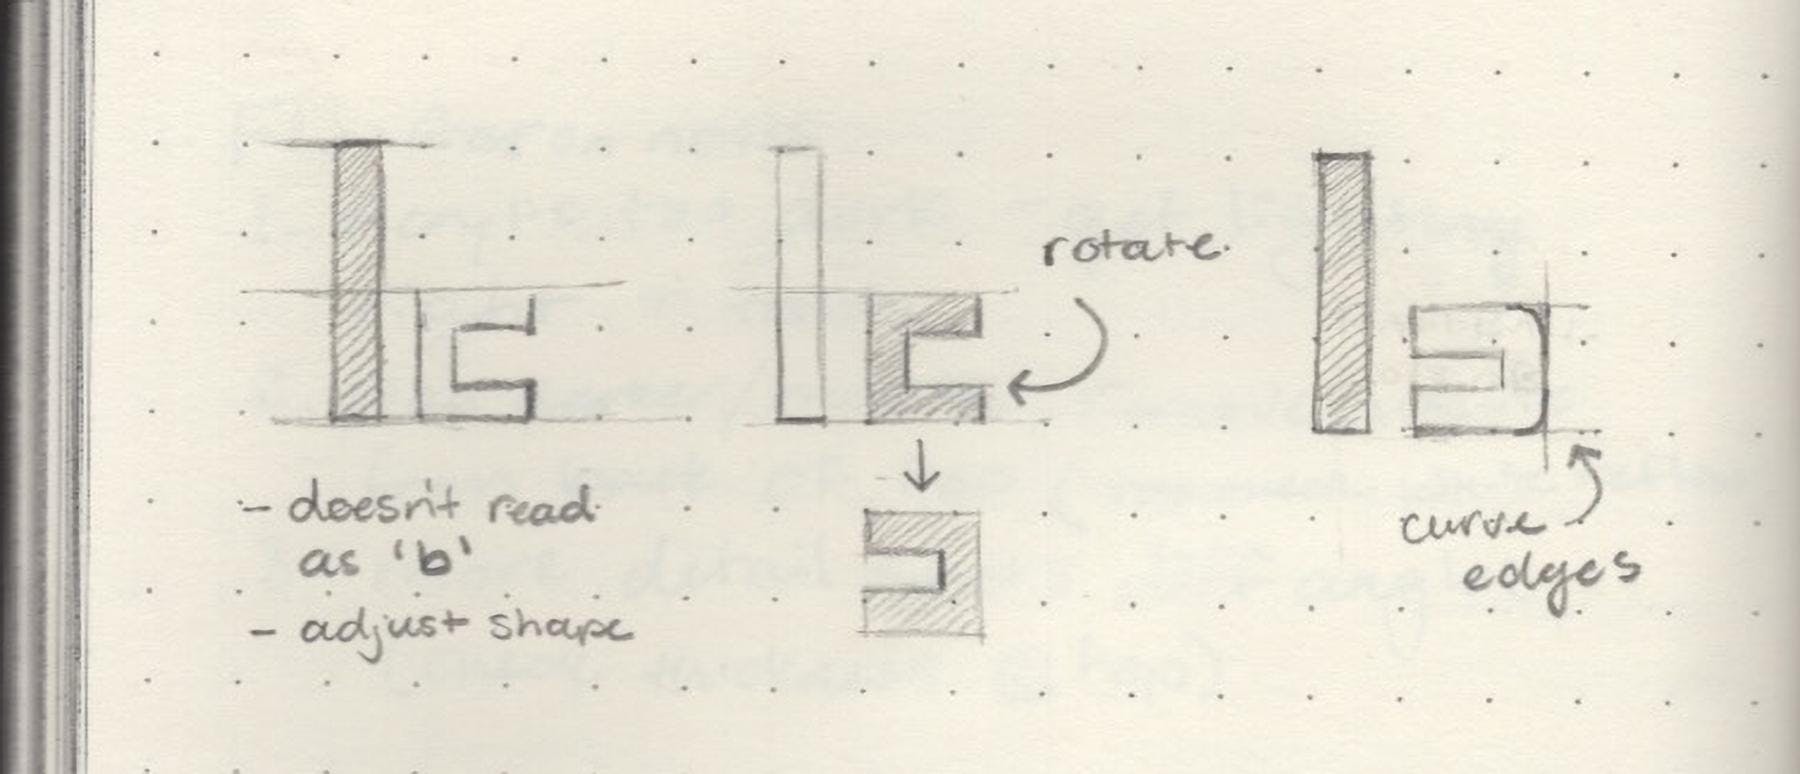 - doesn't read
as 'b'
- adjust shape
rotate
curve
edges